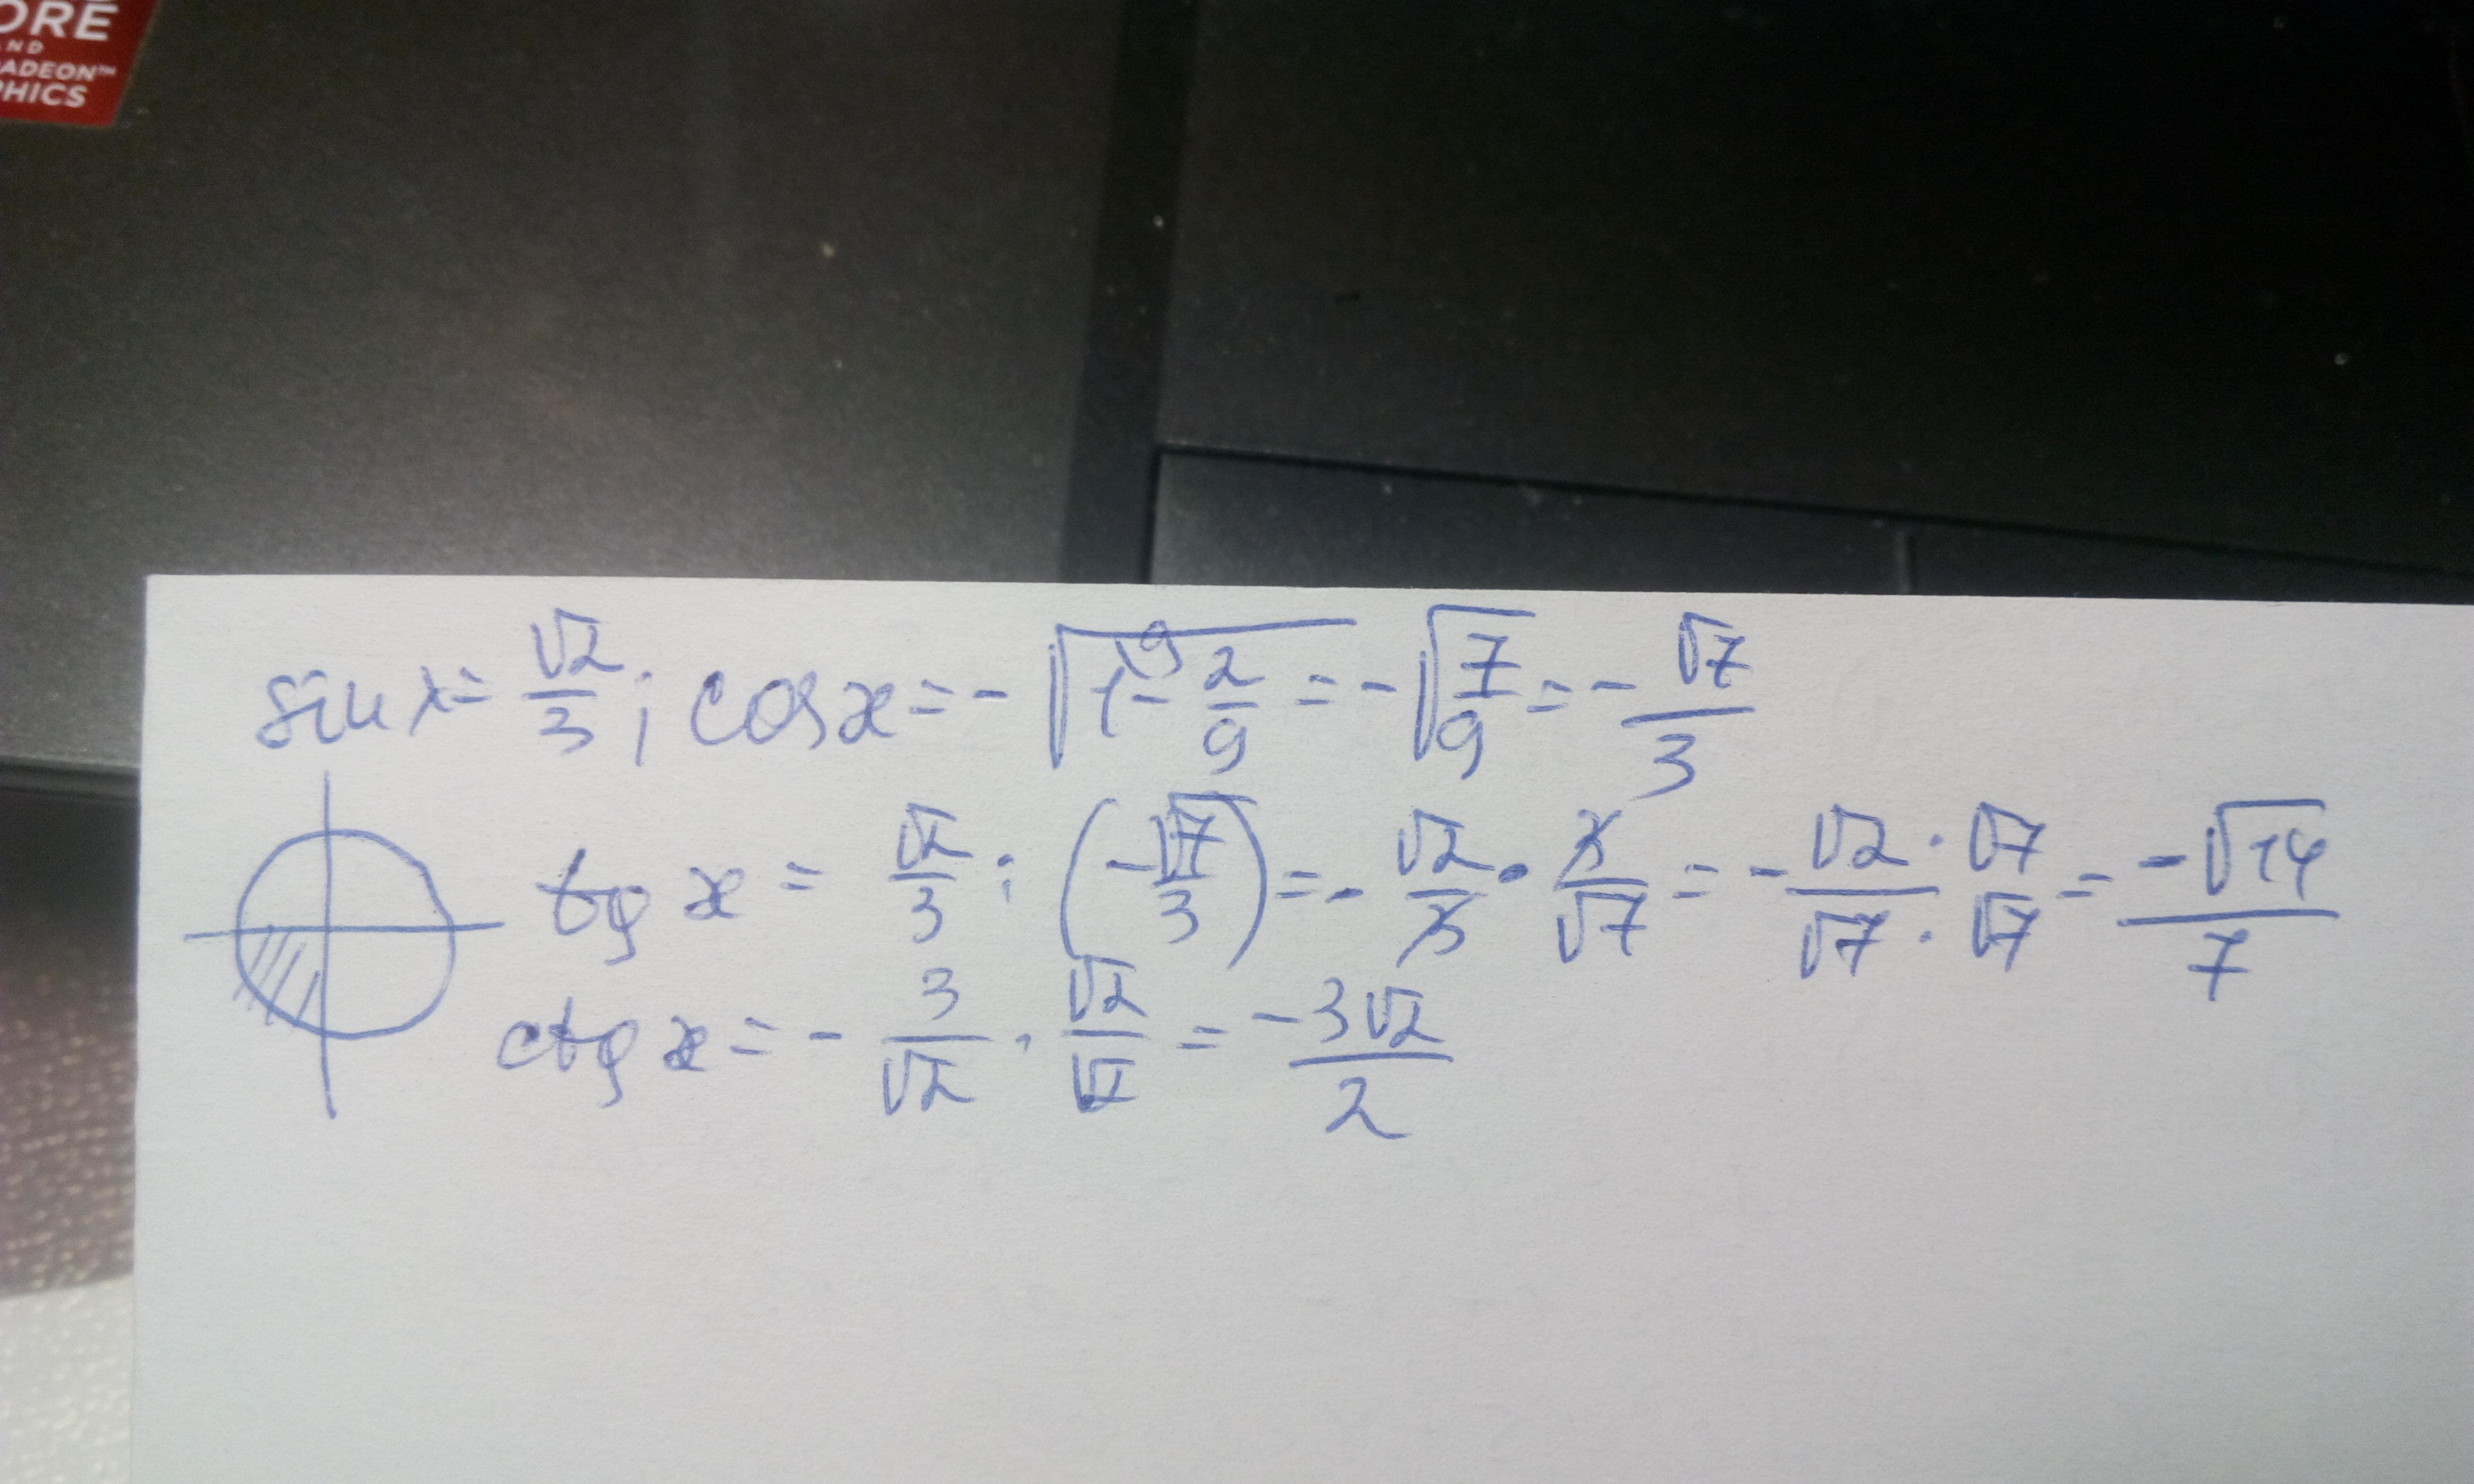 ORE
ND
ADEON™
PHICS
sin x = √2/3 ; cos x = - √(1^9 - 2/9) = - √(7/9) = - √7/3
tg x = √2/3 : (-√7/3) = - √2/3 · 3/√7 = - √2·√7/√7·√7 = -√14/7
ctg x = - 3/√2 · √2/√2 = -3√2/2